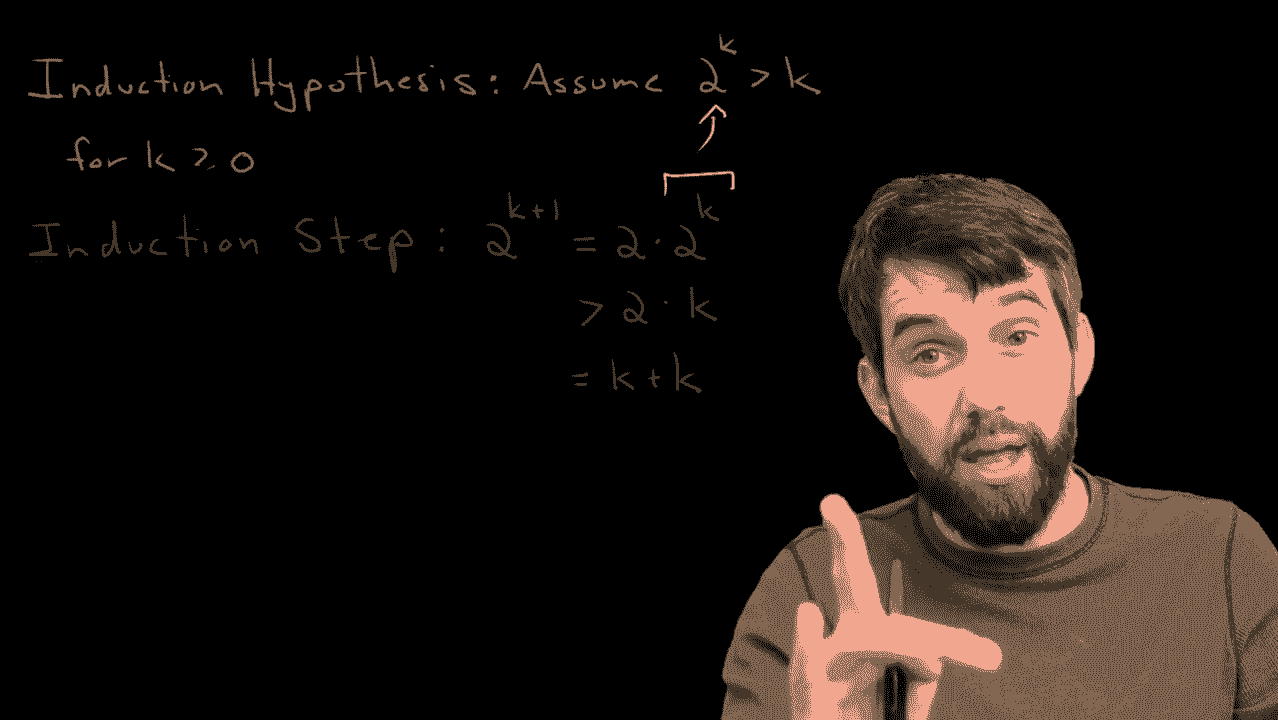 Induction Hypothesis: Assume 2^k > k
for k ≥ 0
Induction Step: 2^(k+1) = 2·2^k
> 2·k
= k+k